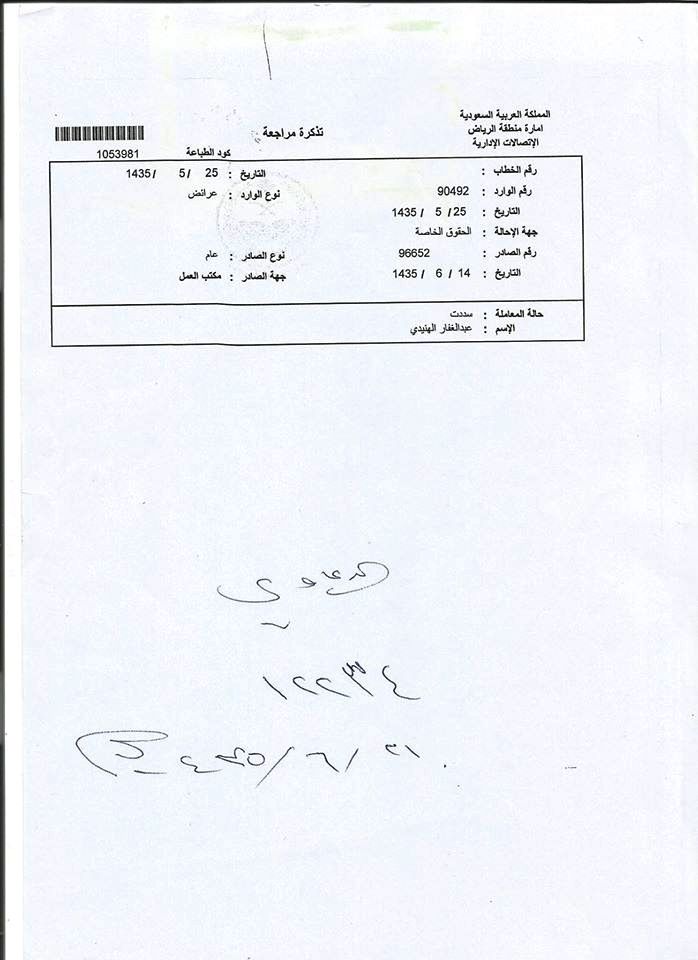 المملكة العربية السعودية
امارة منطقة الرياض
الإتصالات الإدارية
تذكرة مراجعة
كود الطباعة
1053981
رقم الخطاب :
التاريخ : 25 / 5 / 1435
رقم الوارد : 90492
نوع الوارد : عرائض
التاريخ : 25 / 5 / 1435
جهة الإحالة : الحقوق الخاصة
رقم الصادر : 96652
نوع الصادر : عام
التاريخ : 14 / 6 / 1435
جهة الصادر : مكتب العمل
حالة المعاملة : سددت
الإسم : عبدالغفار الهنيدي
الدعاوي